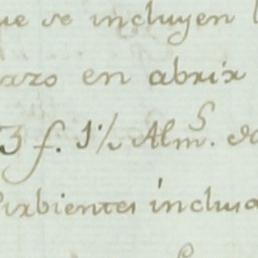 ue se incluyen l
arzo en abrir
3 f. 1½ Almˢ. de
Sirbientes inclus